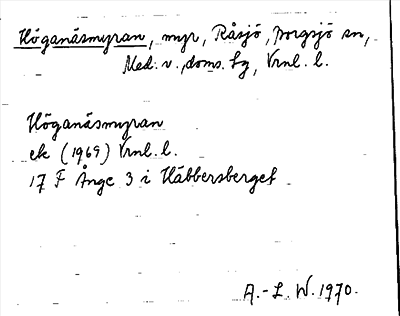 Höganäsmyran, myr, Råsjö, Borgsjö sn,
Med. v. doms. tg, Vrnl. l.
Höganäsmyran
ek (1969) Vrnl. l.
17 F Ånge 3 i Häbbersberget
A.-L. W. 1970.